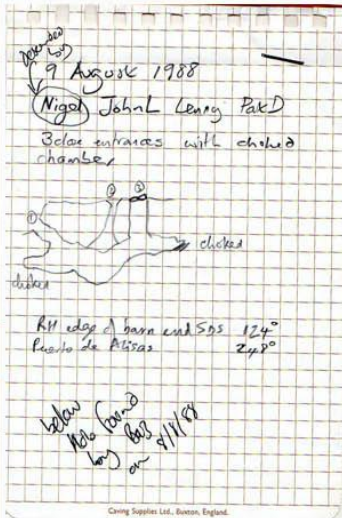 descended
by
9 August 1988
Nigel JohnL Lenny PatD
3 close entrances with choked
chamber
① ② ③
choked
choked
RH edge of barn end SDS 124°
Puerto de Alisas 248°
below
Hole found
by BOB
on 8/8/88
Caving Supplies Ltd., Buxton, England.